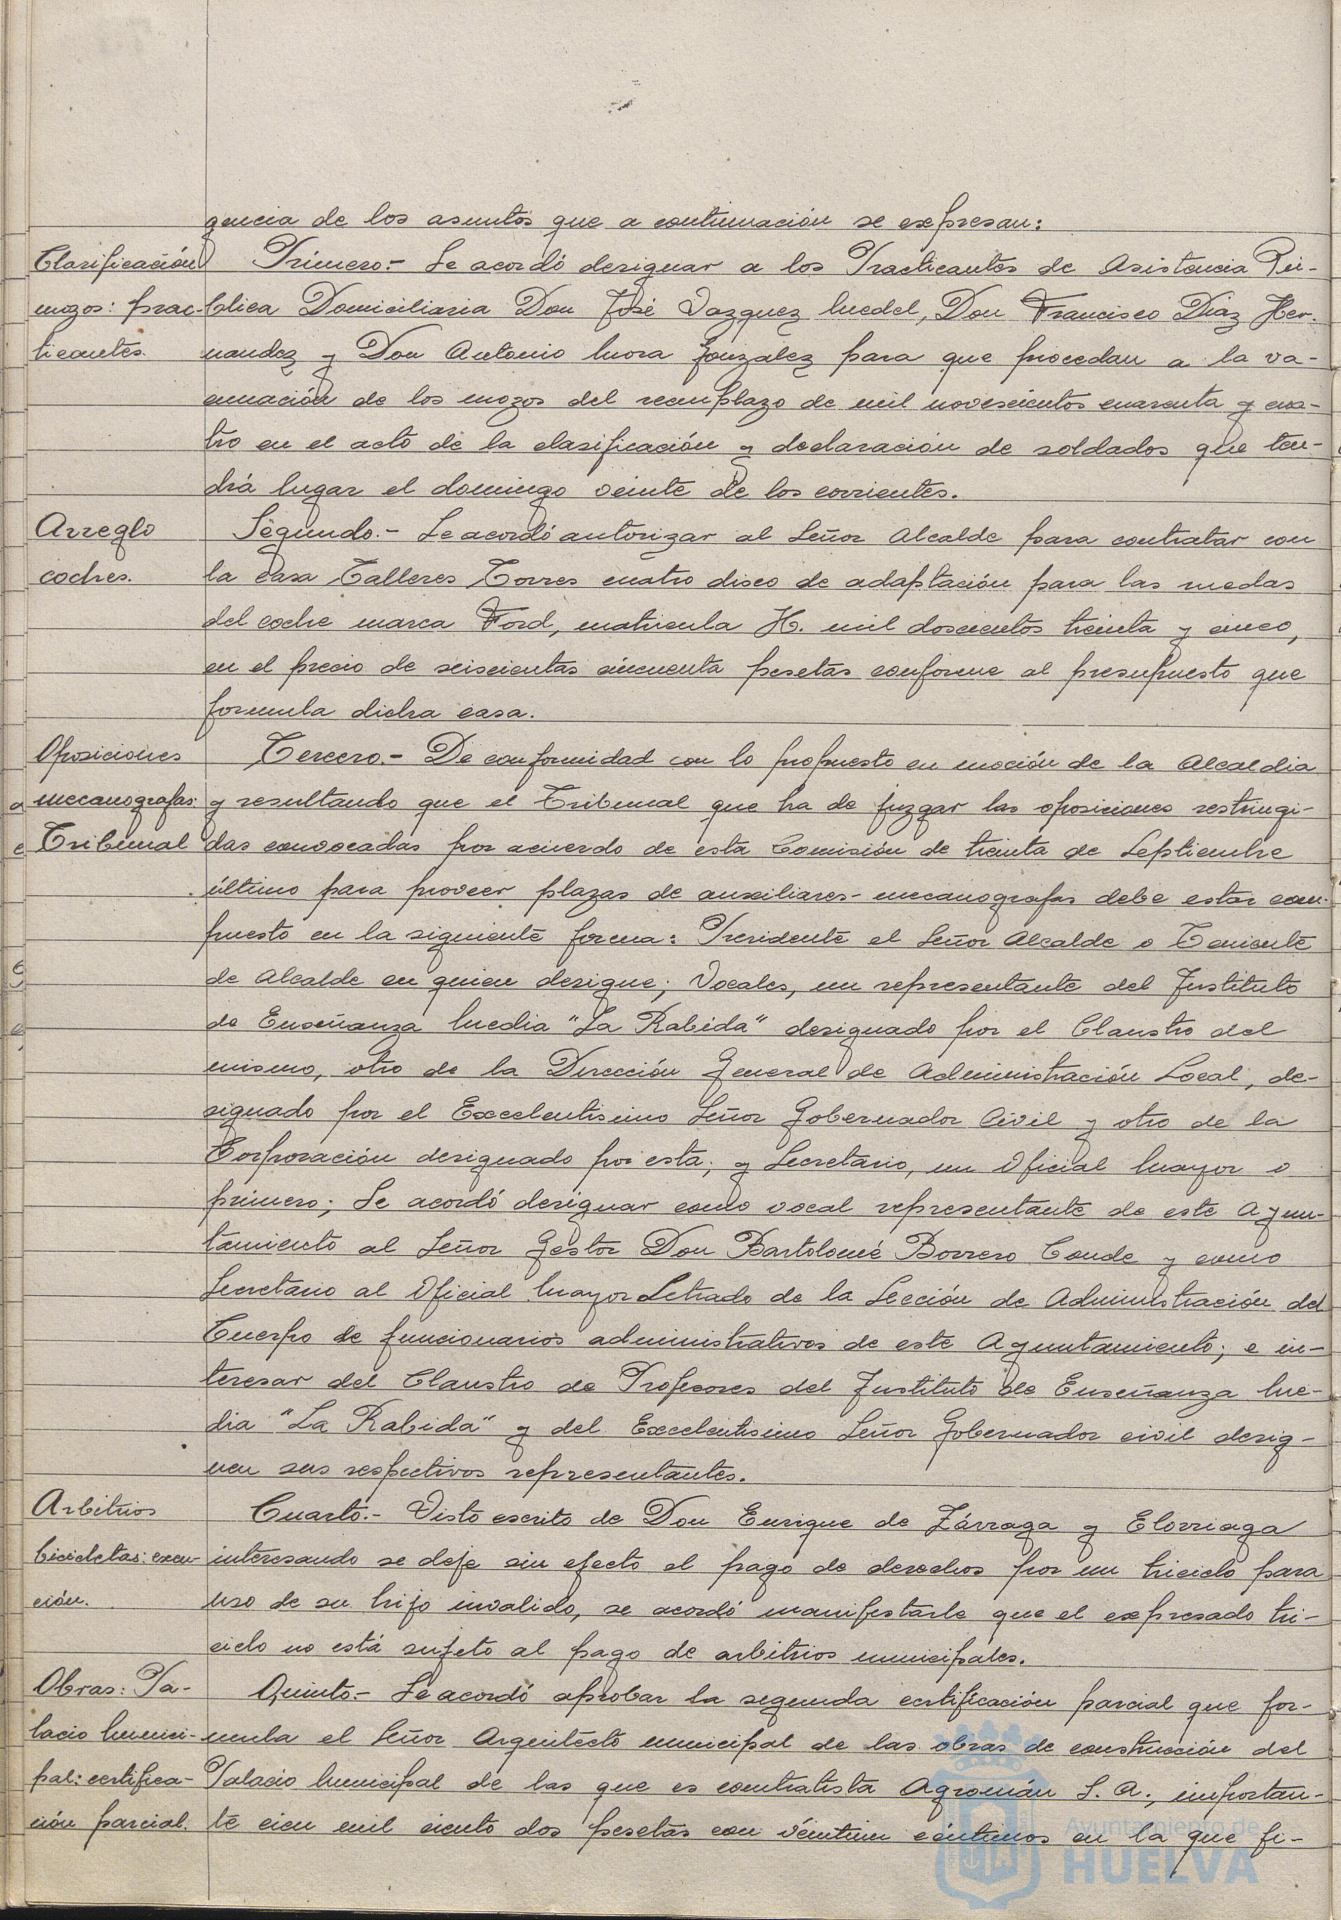 gencia de los asuntos que a continuación se expresan:
Clasificación
mozos: prac-
ticantes.
Primero.- Se acordó designar a los Practicantes de Asistencia Pú-
blica Domiciliaria Don José Vazquez Medel, Don Francisco Díaz Her-
nandez y Don Antonio Mora González para que procedan a la va-
cunación de los mozos del reemplazo de mil novecientos cuarenta y cua-
tro en el acto de la clasificación y declaración de soldados que ten-
drá lugar el domingo veinte de los corrientes.
Arreglo
coches.
Segundo.- Se acordó autorizar al Señor Alcalde para contratar con
la casa Talleres Torres cuatro disco de adaptación para las ruedas
del coche marca Ford, matricula H. mil doscientos treinta y cinco,
en el precio de seiscientas cincuenta pesetas conforme al presupuesto que
formula dicha casa.
Oposiciones
mecanografas:
Tribunal
Tercero.- De conformidad con lo propuesto en moción de la Alcaldia
y resultando que el Tribunal que ha de juzgar las oposiciones restringi-
das convocadas por acuerdo de esta Comisión de treinta de Septiembre
último para proveer plazas de auxiliares-mecanografas debe estar com-
puesto en la siguiente forma: Presidente el Señor Alcalde o Teniente
de Alcalde en quien designe; Vocales, un representante del Instituto
de Enseñanza Media "La Rabida" designado por el Claustro del
mismo, otro de la Dirección General de Administración Local, de-
signado por el Excelentisimo Señor Gobernador Civil y otro de la
Corporación designado por esta; y Secretario, un Oficial Mayor o
primero; Se acordó designar como vocal representante de este Ayun-
tamiento al Señor Gestor Don Bartolomé Borrero Conde y como
Secretario al Oficial Mayor Letrado de la Sección de Administración del
Cuerpo de funcionarios administrativos de este Ayuntamiento; e in-
teresar del Claustro de Profesores del Instituto de Enseñanza Me-
dia "La Rabida" y del Excelentisimo Señor Gobernador civil desig-
nen sus respectivos representantes.
Arbitrios
bicicletas: exen-
ción.
Cuarto.- Visto escrito de Don Enrique de Zárraga y Elorriaga
interesando se deje sin efecto el pago de derechos por un triciclo para
uso de su hijo invalido, se acordó manifestarle que el expresado tri-
ciclo no está sujeto al pago de arbitrios municipales.
Obras: Pa-
lacio Munici-
pal: certifica-
ción parcial.
Quinto.- Se acordó aprobar la segunda certificación parcial que for-
mula el Señor Arquitecto municipal de las obras de construcción del
Palacio Municipal de las que es contratista Agromán S. A., importan-
te cien mil ciento dos pesetas con veintiun céntimos en la que fi-
Ayuntamiento de
HUELVA